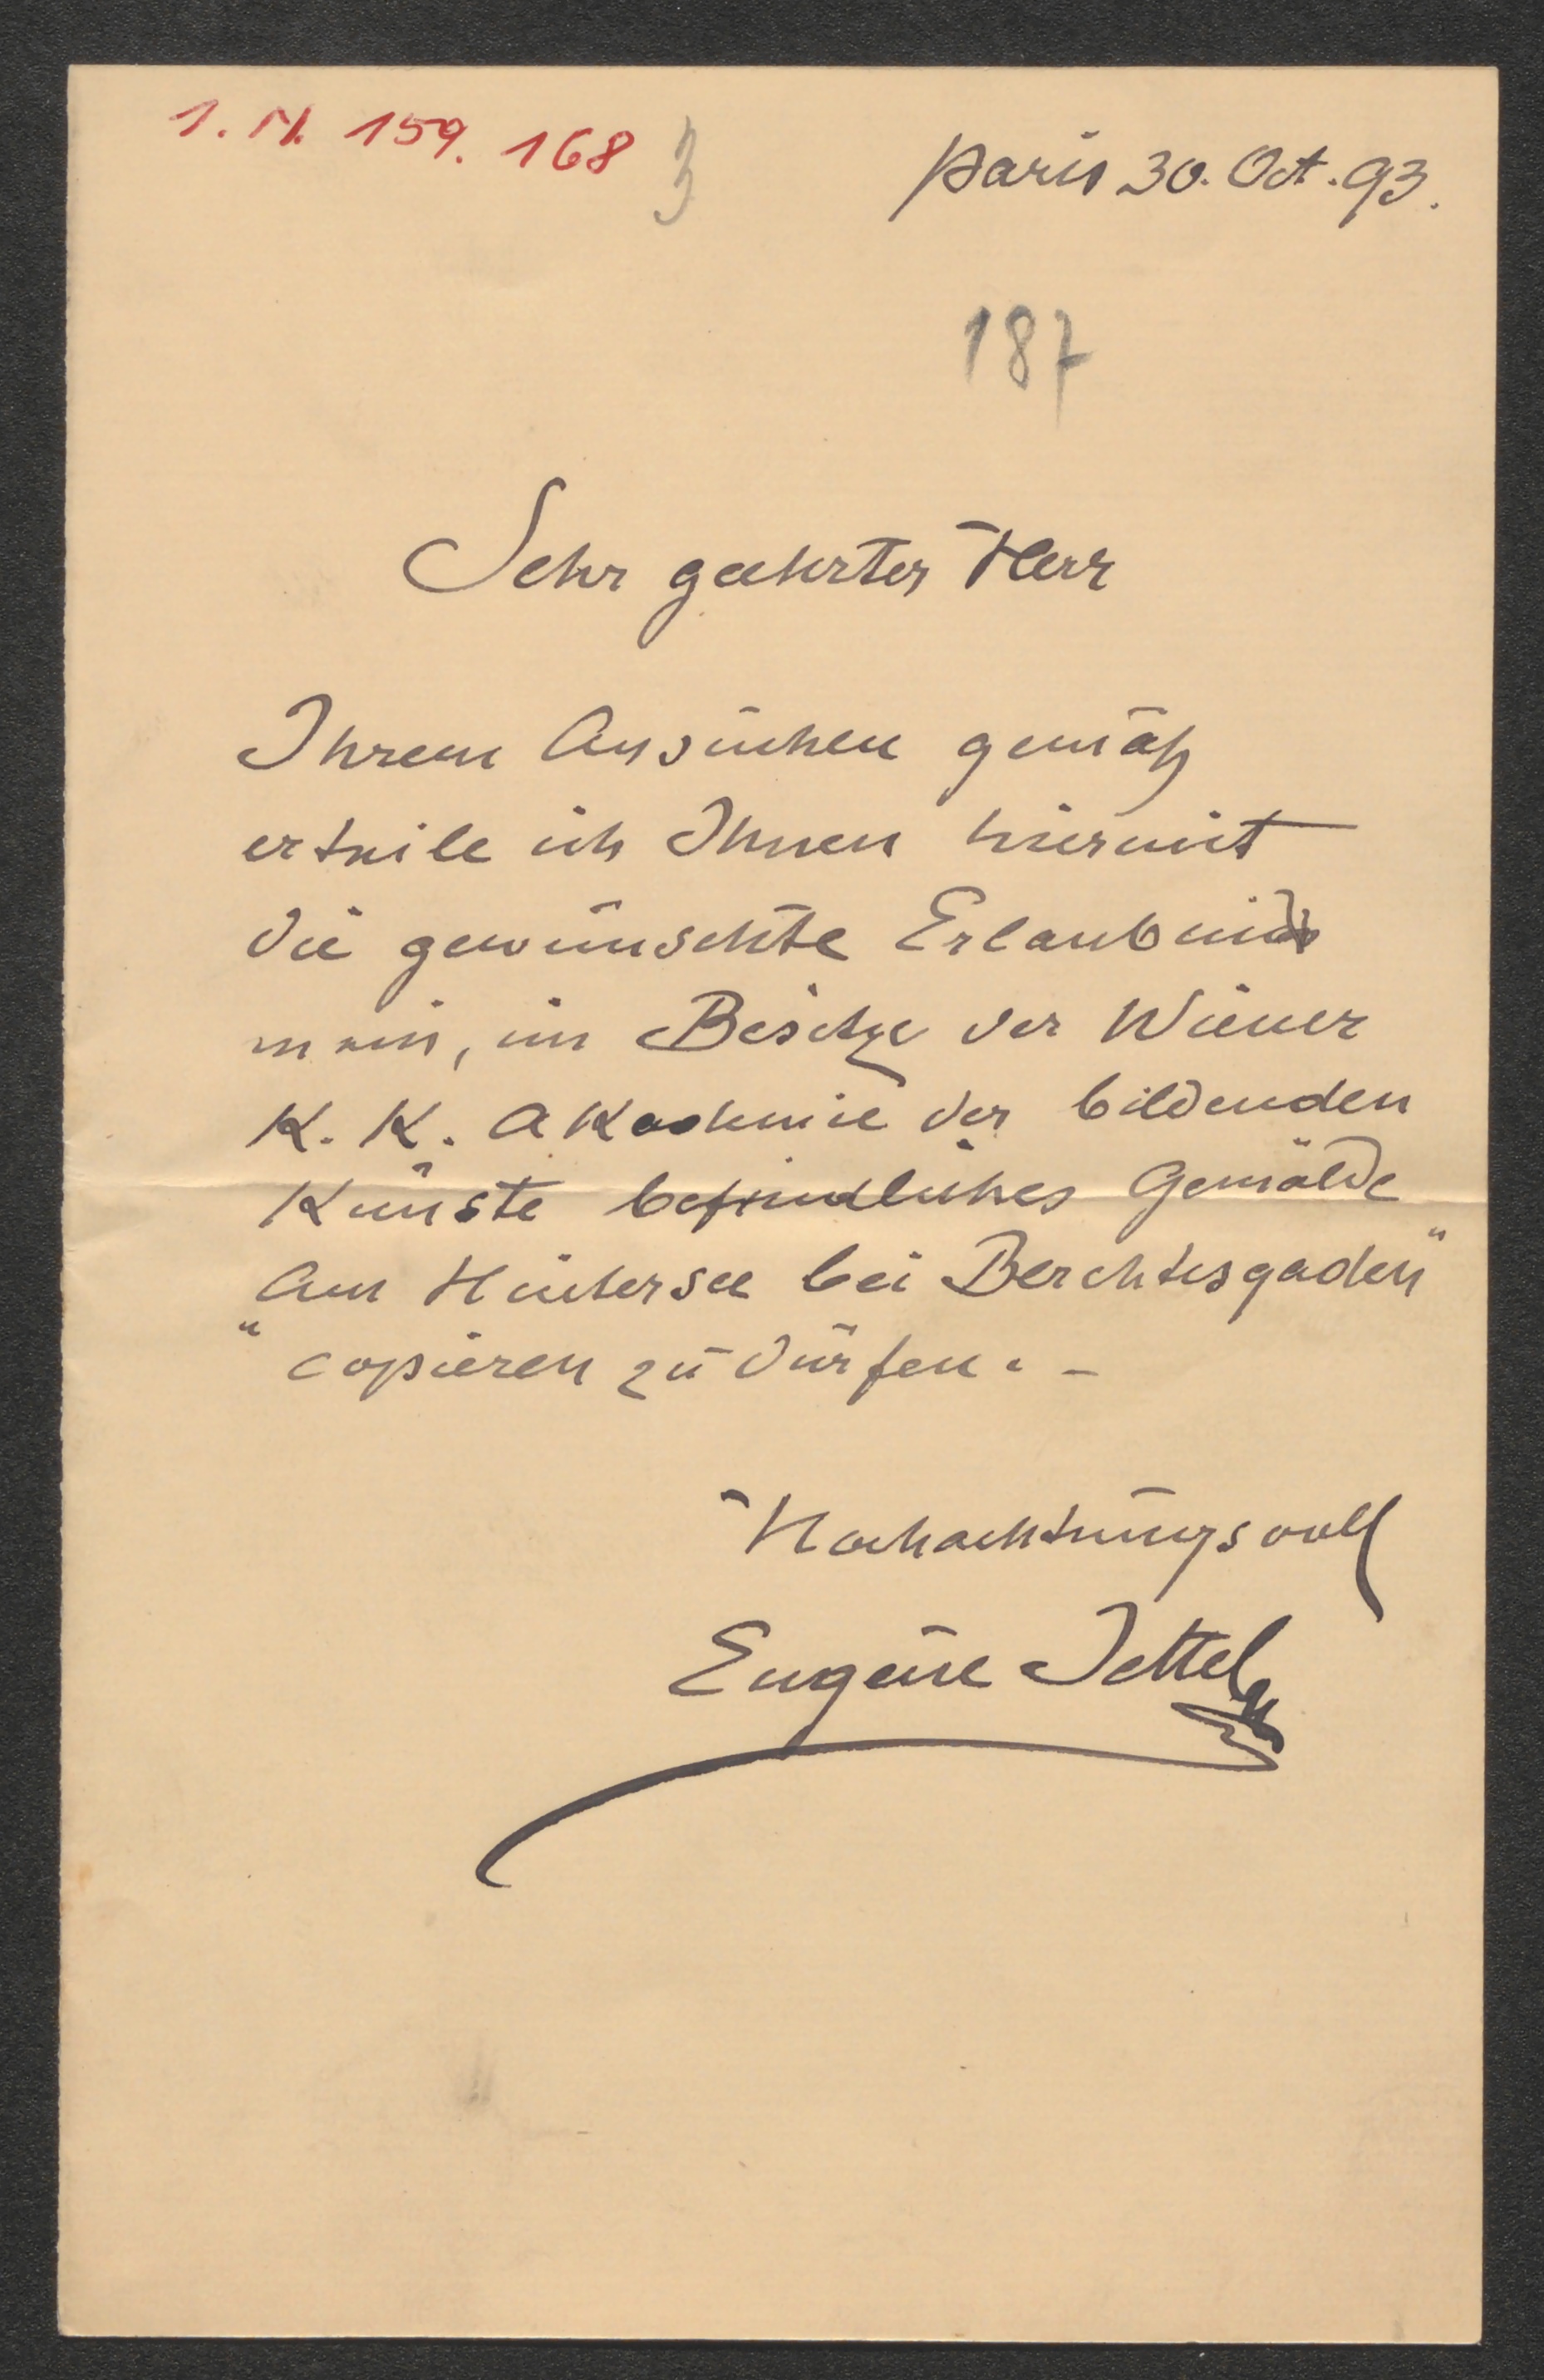 I. N. 159.168
3
Paris 30. Oct. 93.
187
Sehr geehrter Herr
Ihrem Ansuchen gemäß
erteile ich Ihnen hiermit
die gewünschte Erlaubnis
mein, im Besitze der Wiener
K. K. Akademie der bildenden
Künste befindliches Gemälde
Am Hintersee bei Berchtesgaden"
" copieren zu dürfen. –
Hochachtungsvoll
Eugène Jettel